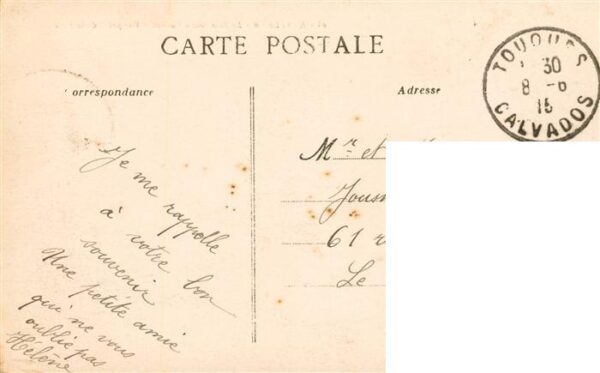 CARTE POSTALE
orrespondance
Adresse
TOUQUES
30
8 -6
15
CALVADOS
Je me rappelle
à votre bon
souvenir
Une petite amie
qui ne vous
oublie pas
Hélène
Mr et
61
Le